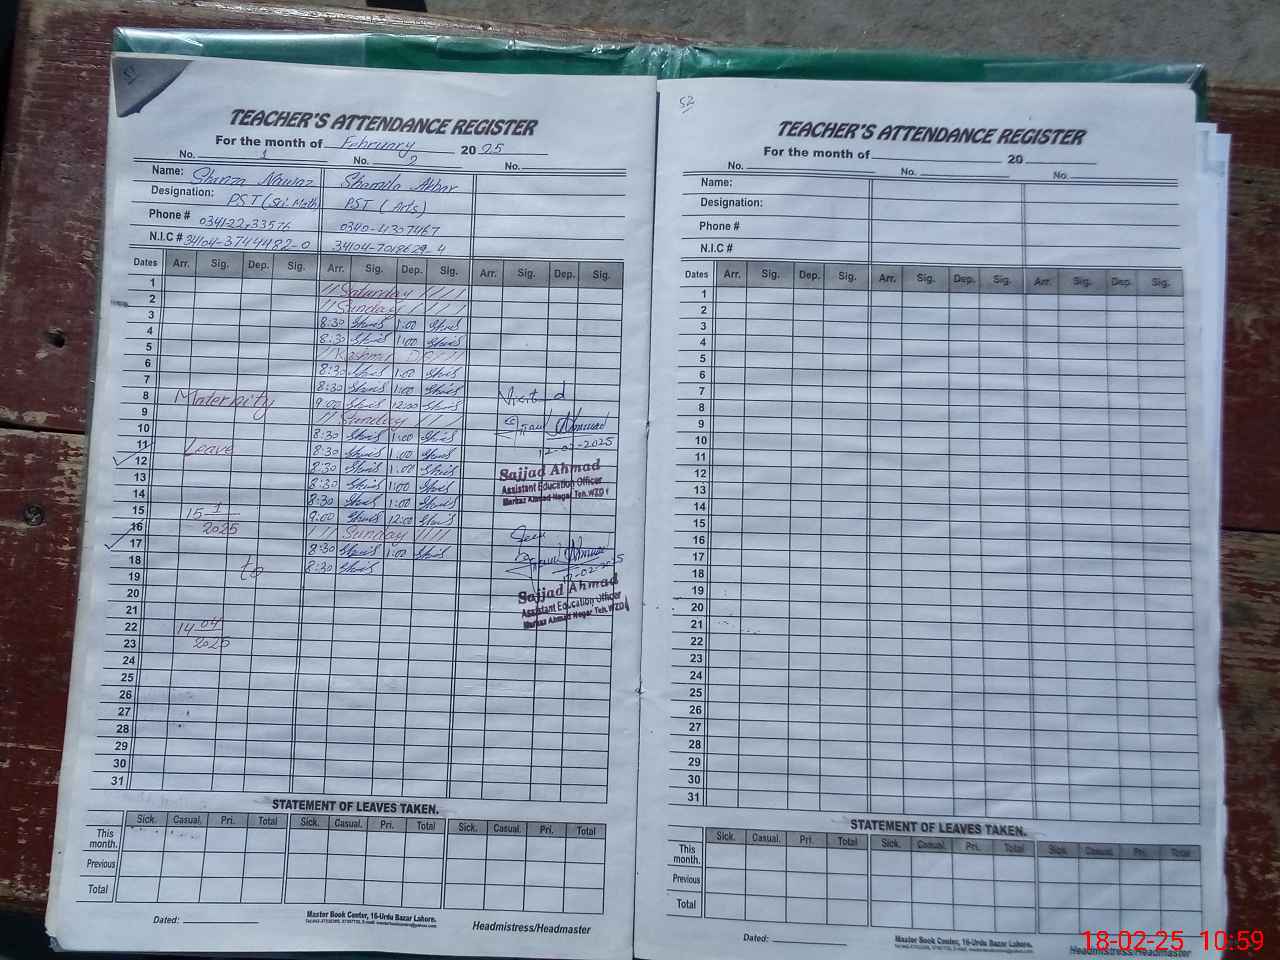 51
TEACHER'S ATTENDANCE REGISTER
For the month of February 2025
No. 1 No. 2 No.
Name: Shinza Nawaz Shamila Akbar
Designation: PST (Sci. Math) PST (Arts)
Phone # 0341-2233576 0340-4307467
N.I.C # 34104-3744482-0 34104-7018629-4
Dates Arr. Sig. Dep. Sig. Arr. Sig. Dep. Sig. Arr. Sig. Dep. Sig.
1 // Saturday ////
2 // Sunday ////
3 8:30 1:00
4 8:30 1:00
5 // Kashmir Day ///
6 8:30 1:00
7 8:30 1:00
8 Maternity 9:00 12:00 Visited
9 // Sunday ////
10 8:30 1:00
11 Leave 8:30 1:00 12-02-2025
12 8:30 1:00 Sajjad Ahmad
13 8:30 1:00 Assistant Education Officer
14 8:30 1:00 Markaz Ahmad Nagar Teh. WZD
15 15 1 9:00 12:00
16 2025 / // Sunday ////
17 8:30 1:00 Seen
18 to 8:30 17-02-2025
19 Sajjad Ahmad
20 Assistant Education Officer
21 Markaz Ahmad Nagar Teh. WZD
22 14 04
23 2025
24
25
26
27
28
29
30
31
STATEMENT OF LEAVES TAKEN.
Sick. Casual. Pri. Total Sick. Casual. Pri. Total Sick. Casual. Pri. Total
This month.
Previous
Total
Dated:
Master Book Center, 16-Urdu Bazar Lahore.
Headmistress/Headmaster
52
TEACHER'S ATTENDANCE REGISTER
For the month of 20
No. No. No.
Name:
Designation:
Phone #
N.I.C #
Dates Arr. Sig. Dep. Sig. Arr. Sig. Dep. Sig. Arr. Sig. Dep. Sig.
1
2
3
4
5
6
7
8
9
10
11
12
13
14
15
16
17
18
19
20
21
22
23
24
25
26
27
28
29
30
31
STATEMENT OF LEAVES TAKEN.
Sick. Casual. Pri. Total Sick. Casual. Pri. Total Sick. Casual. Pri. Total
This month.
Previous
Total
Dated:
Master Book Center, 16-Urdu Bazar Lahore.
Headmistress/Headmaster
18-02-25 10:59